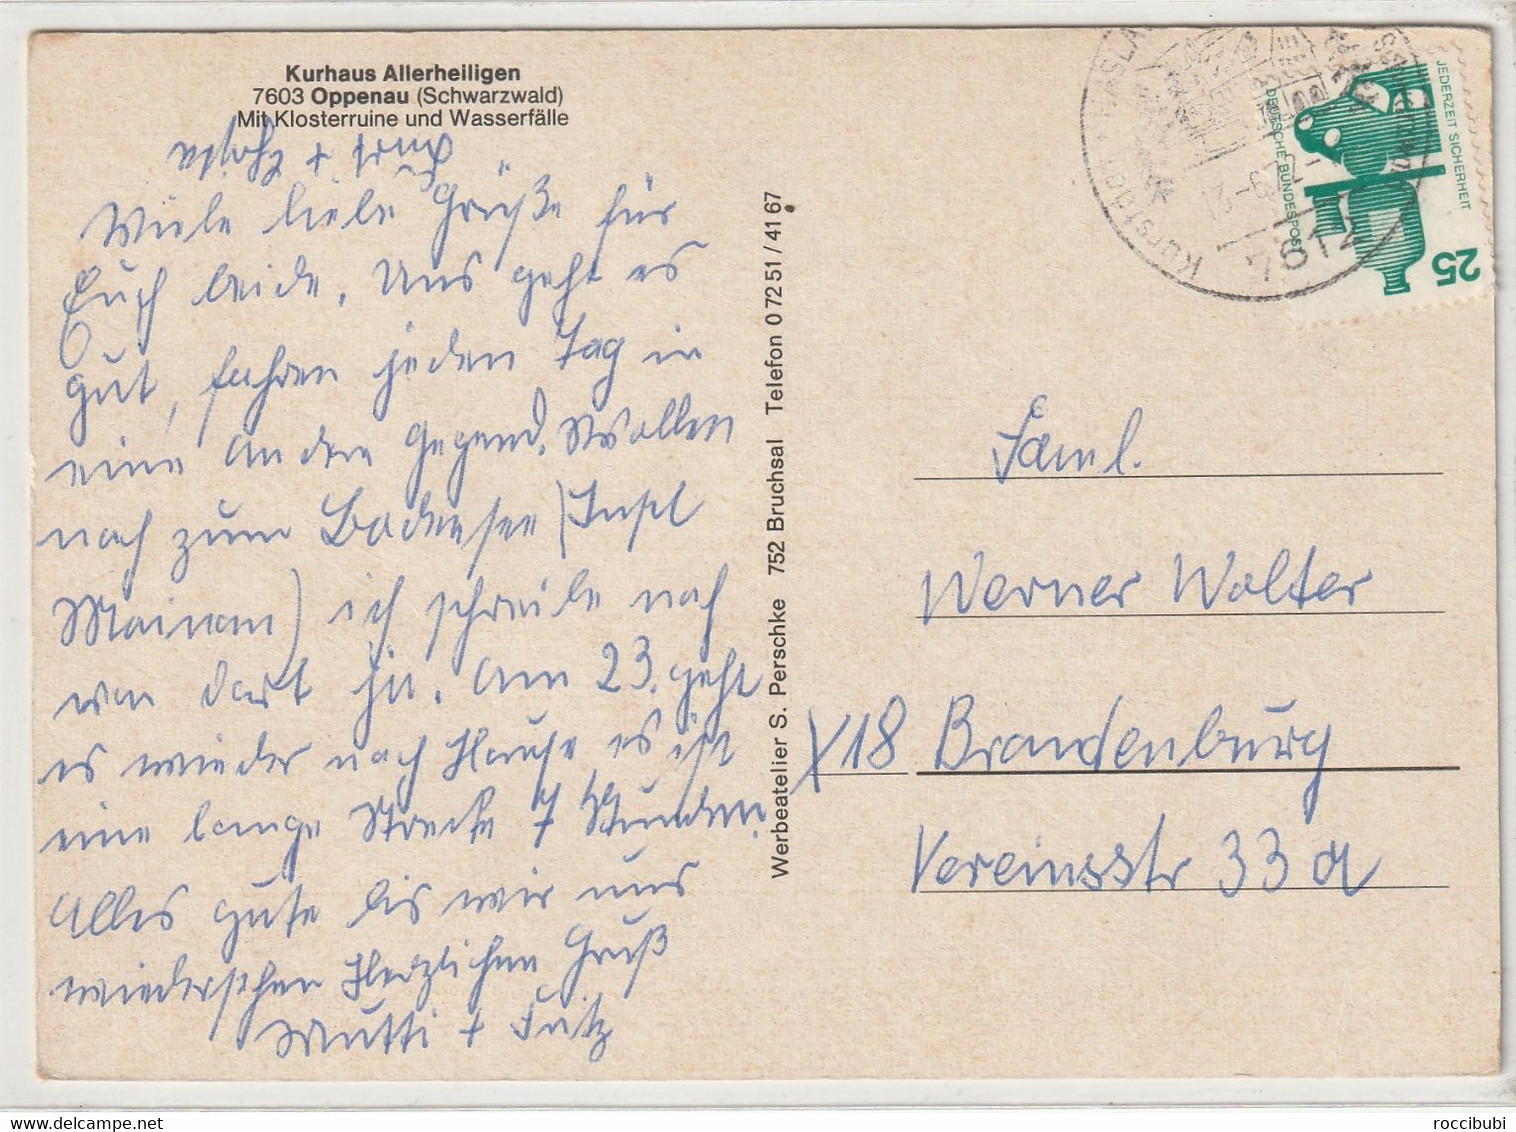 Kurhaus Allerheiligen
7603 Oppenau (Schwarzwald)
Mit Klosterruine und Wasserfälle
Viele liebe Grüße für
Euch beide. Uns geht es
gut, fahren jeden Tag in
eine andere Gegend. Wollen
noch zum Bodensee (Insel
Mainau) ich schreibe noch
von dort hin. Am 23. geht
es wieder nach Hause es ist
eine lange Strecke 7 Stunden.
Alles gute bis wir uns
wiedersehen Herzlichen Gruß
Mutti + Fritz
Werbeatelier S. Perschke 752 Bruchsal Telefon 0 72 51 / 41 67
JEDERZEIT SICHERHEIT
DEUTSCHE BUNDESPOST
25
7612
Faml.
Werner Wolter
X18 Brandenburg
Vereinsstr 33 a
roccibubi